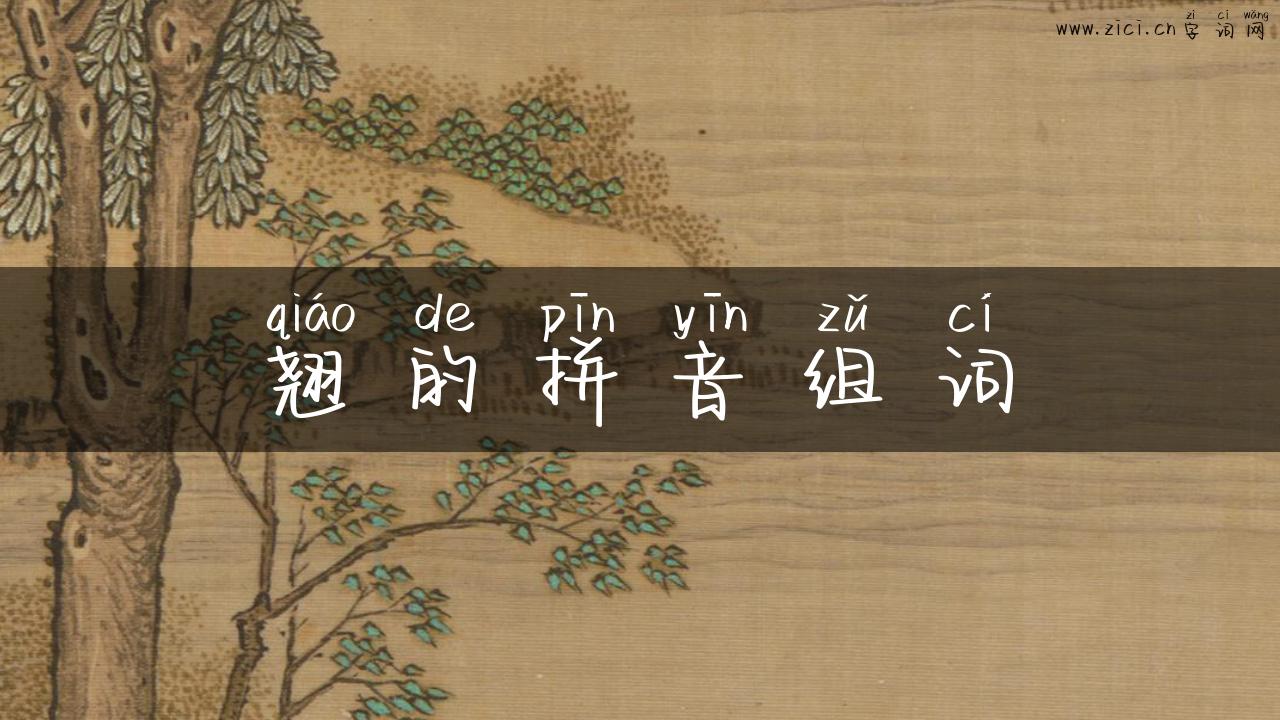 zì cí wǎng
www.zici.cn 字词网
qiáo de pīn yīn zǔ cí
翘的拼音组词